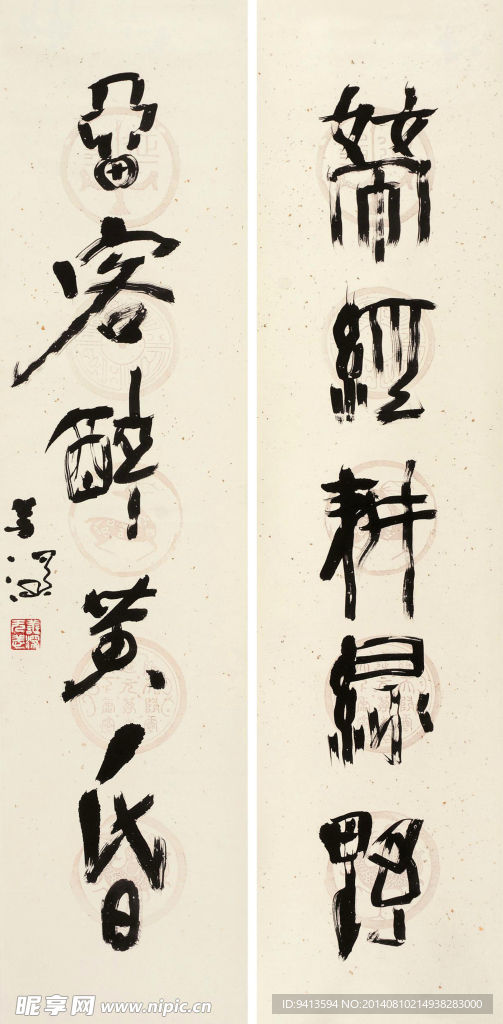 帶經耕綠野
留客醉黃昏
昵享网 www.nipic.cn
ID:9413594 NO:20140810214938283000